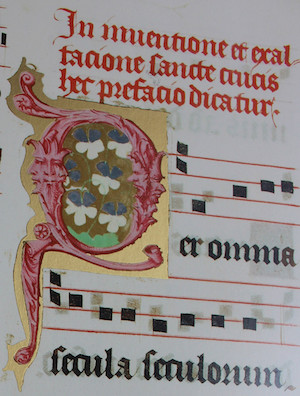 In inuentione et exal
tacione sancte crucis
hec prefacio dicatur.
Per omnia
secula seculorum.